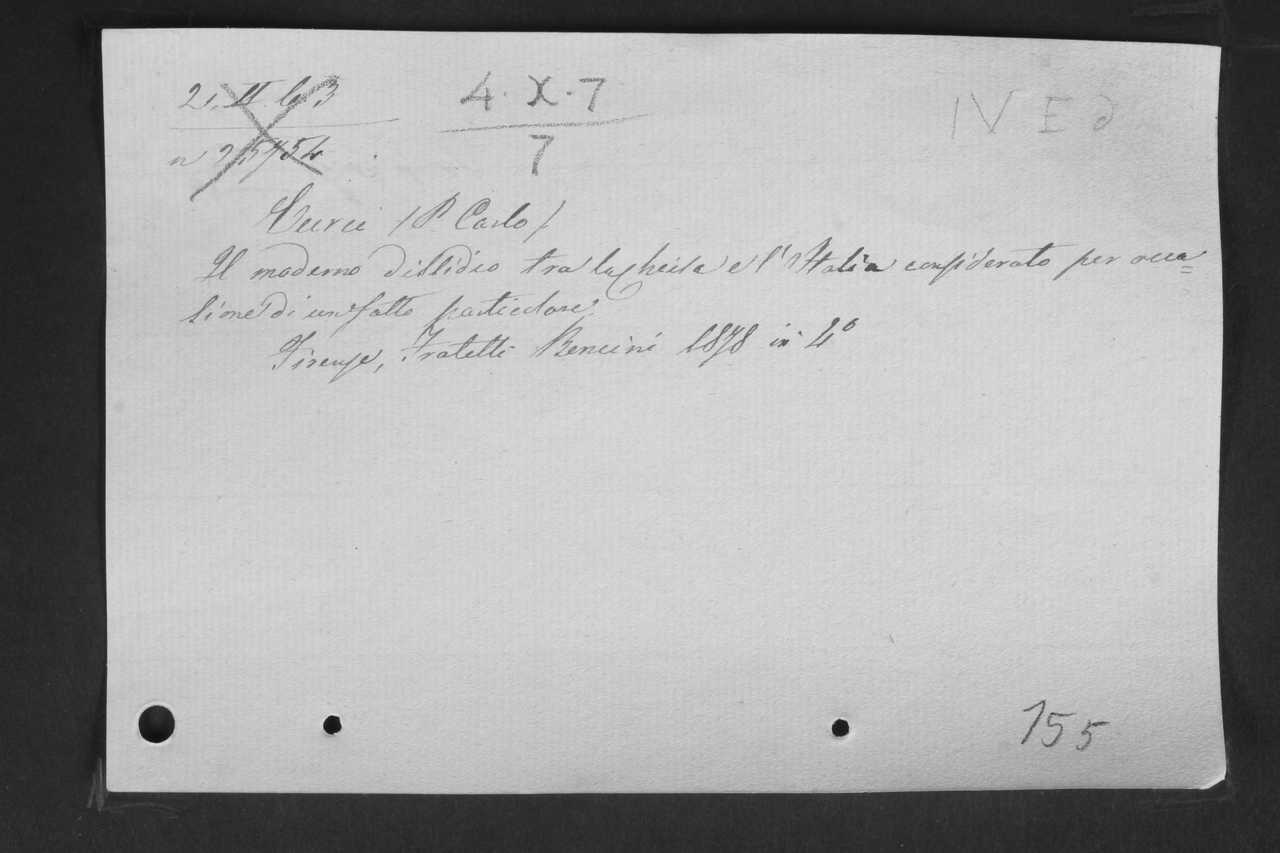 4. X. 7
7
IV E
Curci (P. Carlo)
Il moderno dissidio tra la Chiesa e l'Italia considerato per occa=
sione di un fatto particolare.
Firenze, Fratelli Bencini 1878 in 4º
155